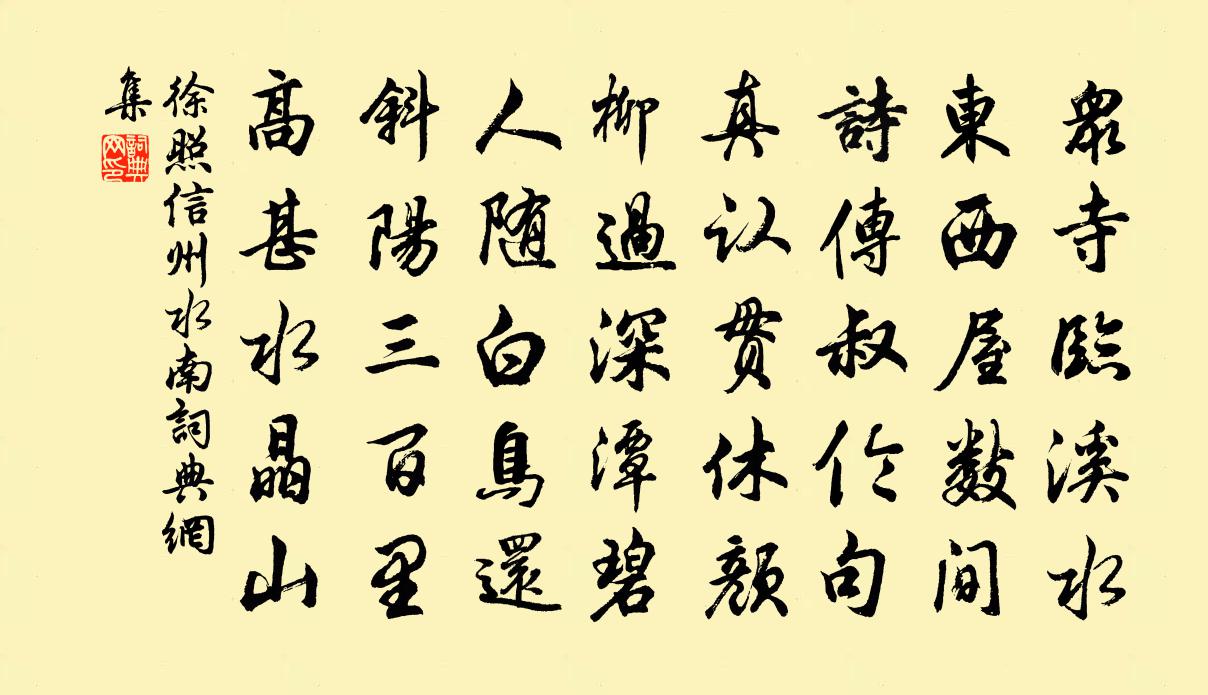 衆寺臨溪水
東西屋數間
詩傳叔倫句
真認貫休顏
柳過深潭碧
人随白鳥還
斜陽三百里
高甚水晶山
徐照信州水南詞典網
集
詞典網印